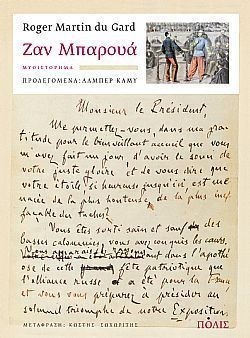 Roger Martin du Gard
Ζαν Μπαρουά
ΜΥΘΙΣΤΟΡΗΜΑ
ΠΡΟΛΕΓΟΜΕΝΑ: ΑΛΜΠΕΡ ΚΑΜΥ
Monsieur le Président,
Me permettez-vous, dans ma gra-
titude pour le bienveillant accueil que vous
m'avez fait un jour, d'avoir le souci de
votre juste gloire et de vous dire que
votre étoile, si heureuse jusqu'ici, est me-
nacée de la plus honteuse, de la plus inef-
façable des taches?
Vous êtes sorti sain et sauf des
basses calomnies, vous avez conquis les cœurs.
Vous apparaissez dans l'apothé-
ose de cette fête patriotique que
l'alliance russe a été pour la
et vous vous préparez à présider au
solennel triomphe de notre Exposition
ΜΕΤΑΦΡΑΣΗ: ΚΩΣΤΗΣ ΣΩΧΩΡΙΤΗΣ
ΠΟΛΙΣ